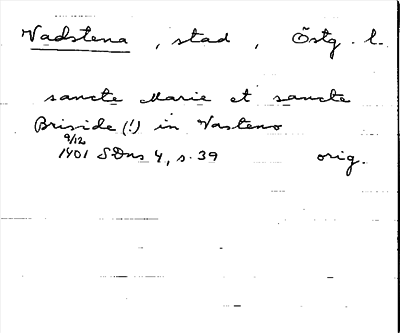 Vadstena, stad, Östg. l.
sancte Marie et sancte
Briside (!) in Vasteno
9/12
1401 SDns 4, s. 39 orig.